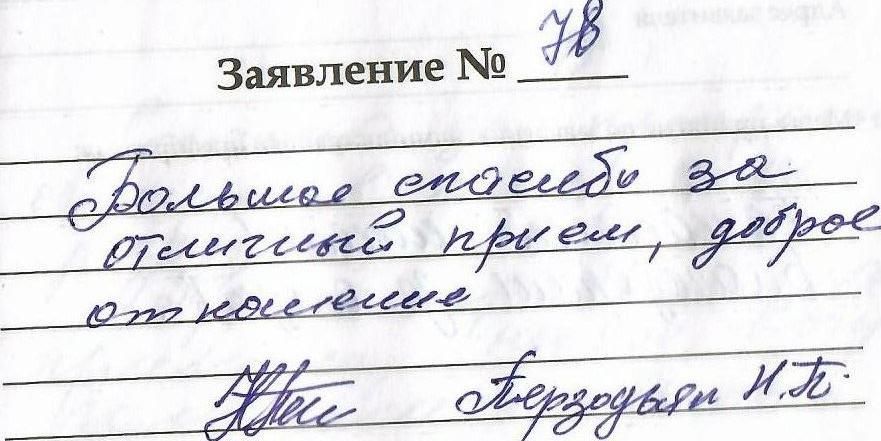 Заявление № 78
Большое спасибо за
отличный прием, доброе
отношение
Н.П.